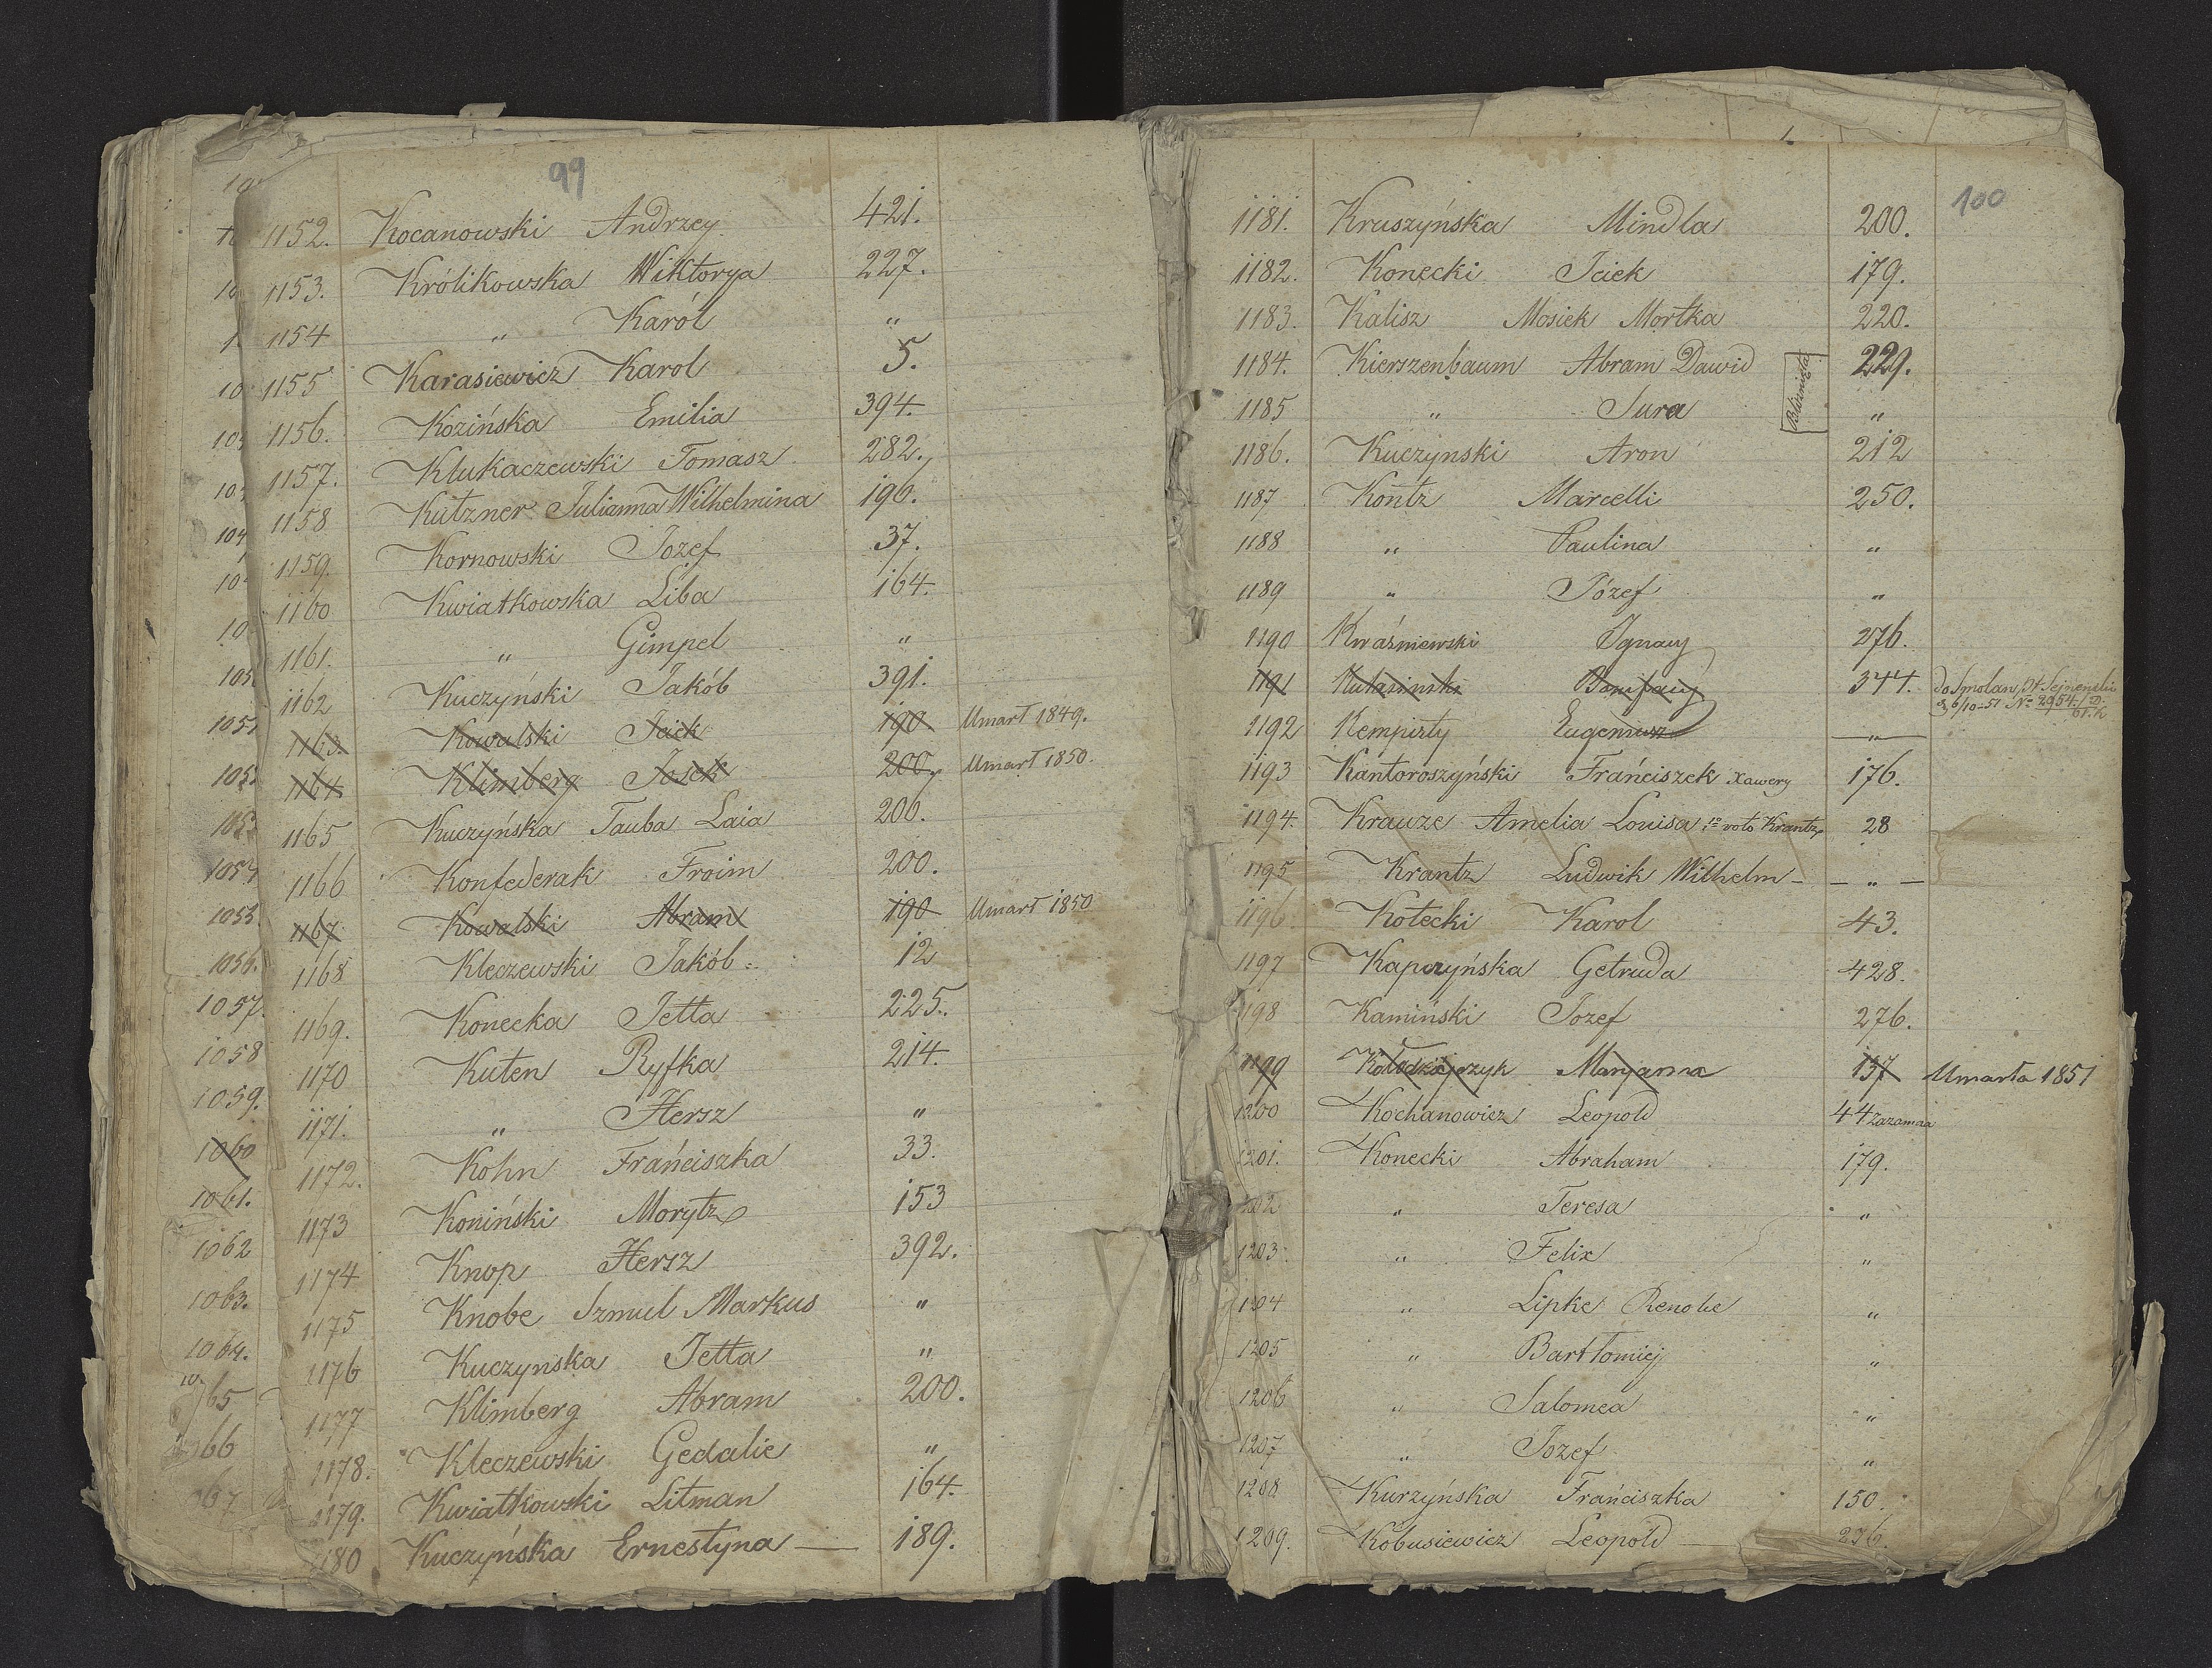 99
1152. Kocanowski Andrzey. 421.
1153. Królikowska Wiktorya 227.
1154 " Karól "
1155 Karasiewicz Karol 5.
1156. Kozińska Emilia 394.
1157. Klukaczewski Tomasz 282.
1158 Kutzner Julianna Wilhelmina 196.
1159. Kornowski Jozef 37.
1160 Kwiatkowska Liba 164.
1161. " Gimpel "
1162 Kuczyński Jakób 391.
1163. Kowalski Icick 190 Umarł 1849.
1164 Klimberg Josek 200. Umarł 1850.
1165 Kuczyńska Tauba Laia 200.
1166 Konfederak Froim 200.
1167 Kowalski Abram 190 Umarł 1850
1168 Kleczewski Jakób. 12
1169. Konecka Jetta 225.
1170 Kuten Ryfka 214.
1171. " Hersz "
1172. Kohn Frańciszka 33.
1173 Koniński Morytz 153
1174 Knop Hersz 392.
1175 Knobe Szmul Markus "
1176 Kuczynska Jetta "
1177 Klimberg Abram 200.
1178. Kleczewski Gedalie "
1179. Kwiatkowski Litman 164.
1180 Kuczyńska Ernestyna — 189.
1051
1056.
1057.
1058
1059.
1060
1061.
1062
1063.
1064.
65
66
67
100
1181. Kruszyńska Mindla 200.
1182. Konecki Iciek 179.
1183. Kalisz Mosiek Mortka 220.
1184. Kierszenbaum Abram Dawid 229.
Bliźnięta
1185 " Sura "
1186. Kuczynski Aron 212
1187 Kontz Marcelli 250.
1188 " Paulina "
1189 " Józef "
1190 Kwaśniewski Ignacy 276.
1191 Bonifacy 344. Do Smolan, Pt Sejneński
6/10-51 No 2954
1192 Kempisty Eugeniusz — " —
1193 Kantoroszyński Frańciszek Xawery 176.
1194. Krauze Amelia Louisa 1o voto Krantz 28
1195 Krantz Ludwik Wilhelm - — " —
1196. Kotecki Karol 43.
1197 Kapczyńska Getruda 428.
1198 Kamiński Jozef 276.
1199 Kołodziejczyk Maryanna 137 Umarła 1851
1200 Kochanowicz Leopold 44 zazamaa
1201. Konecki Abraham 179.
1202 " Teresa "
1203. " Felix "
1204 " Lipke Renobe "
1205 " Bartłomiej "
1206 " Salomea "
1207 " Jozef "
1208 Kurzyńska Frańciszka 150.
1209. Kobusiewicz Leopold — 236.